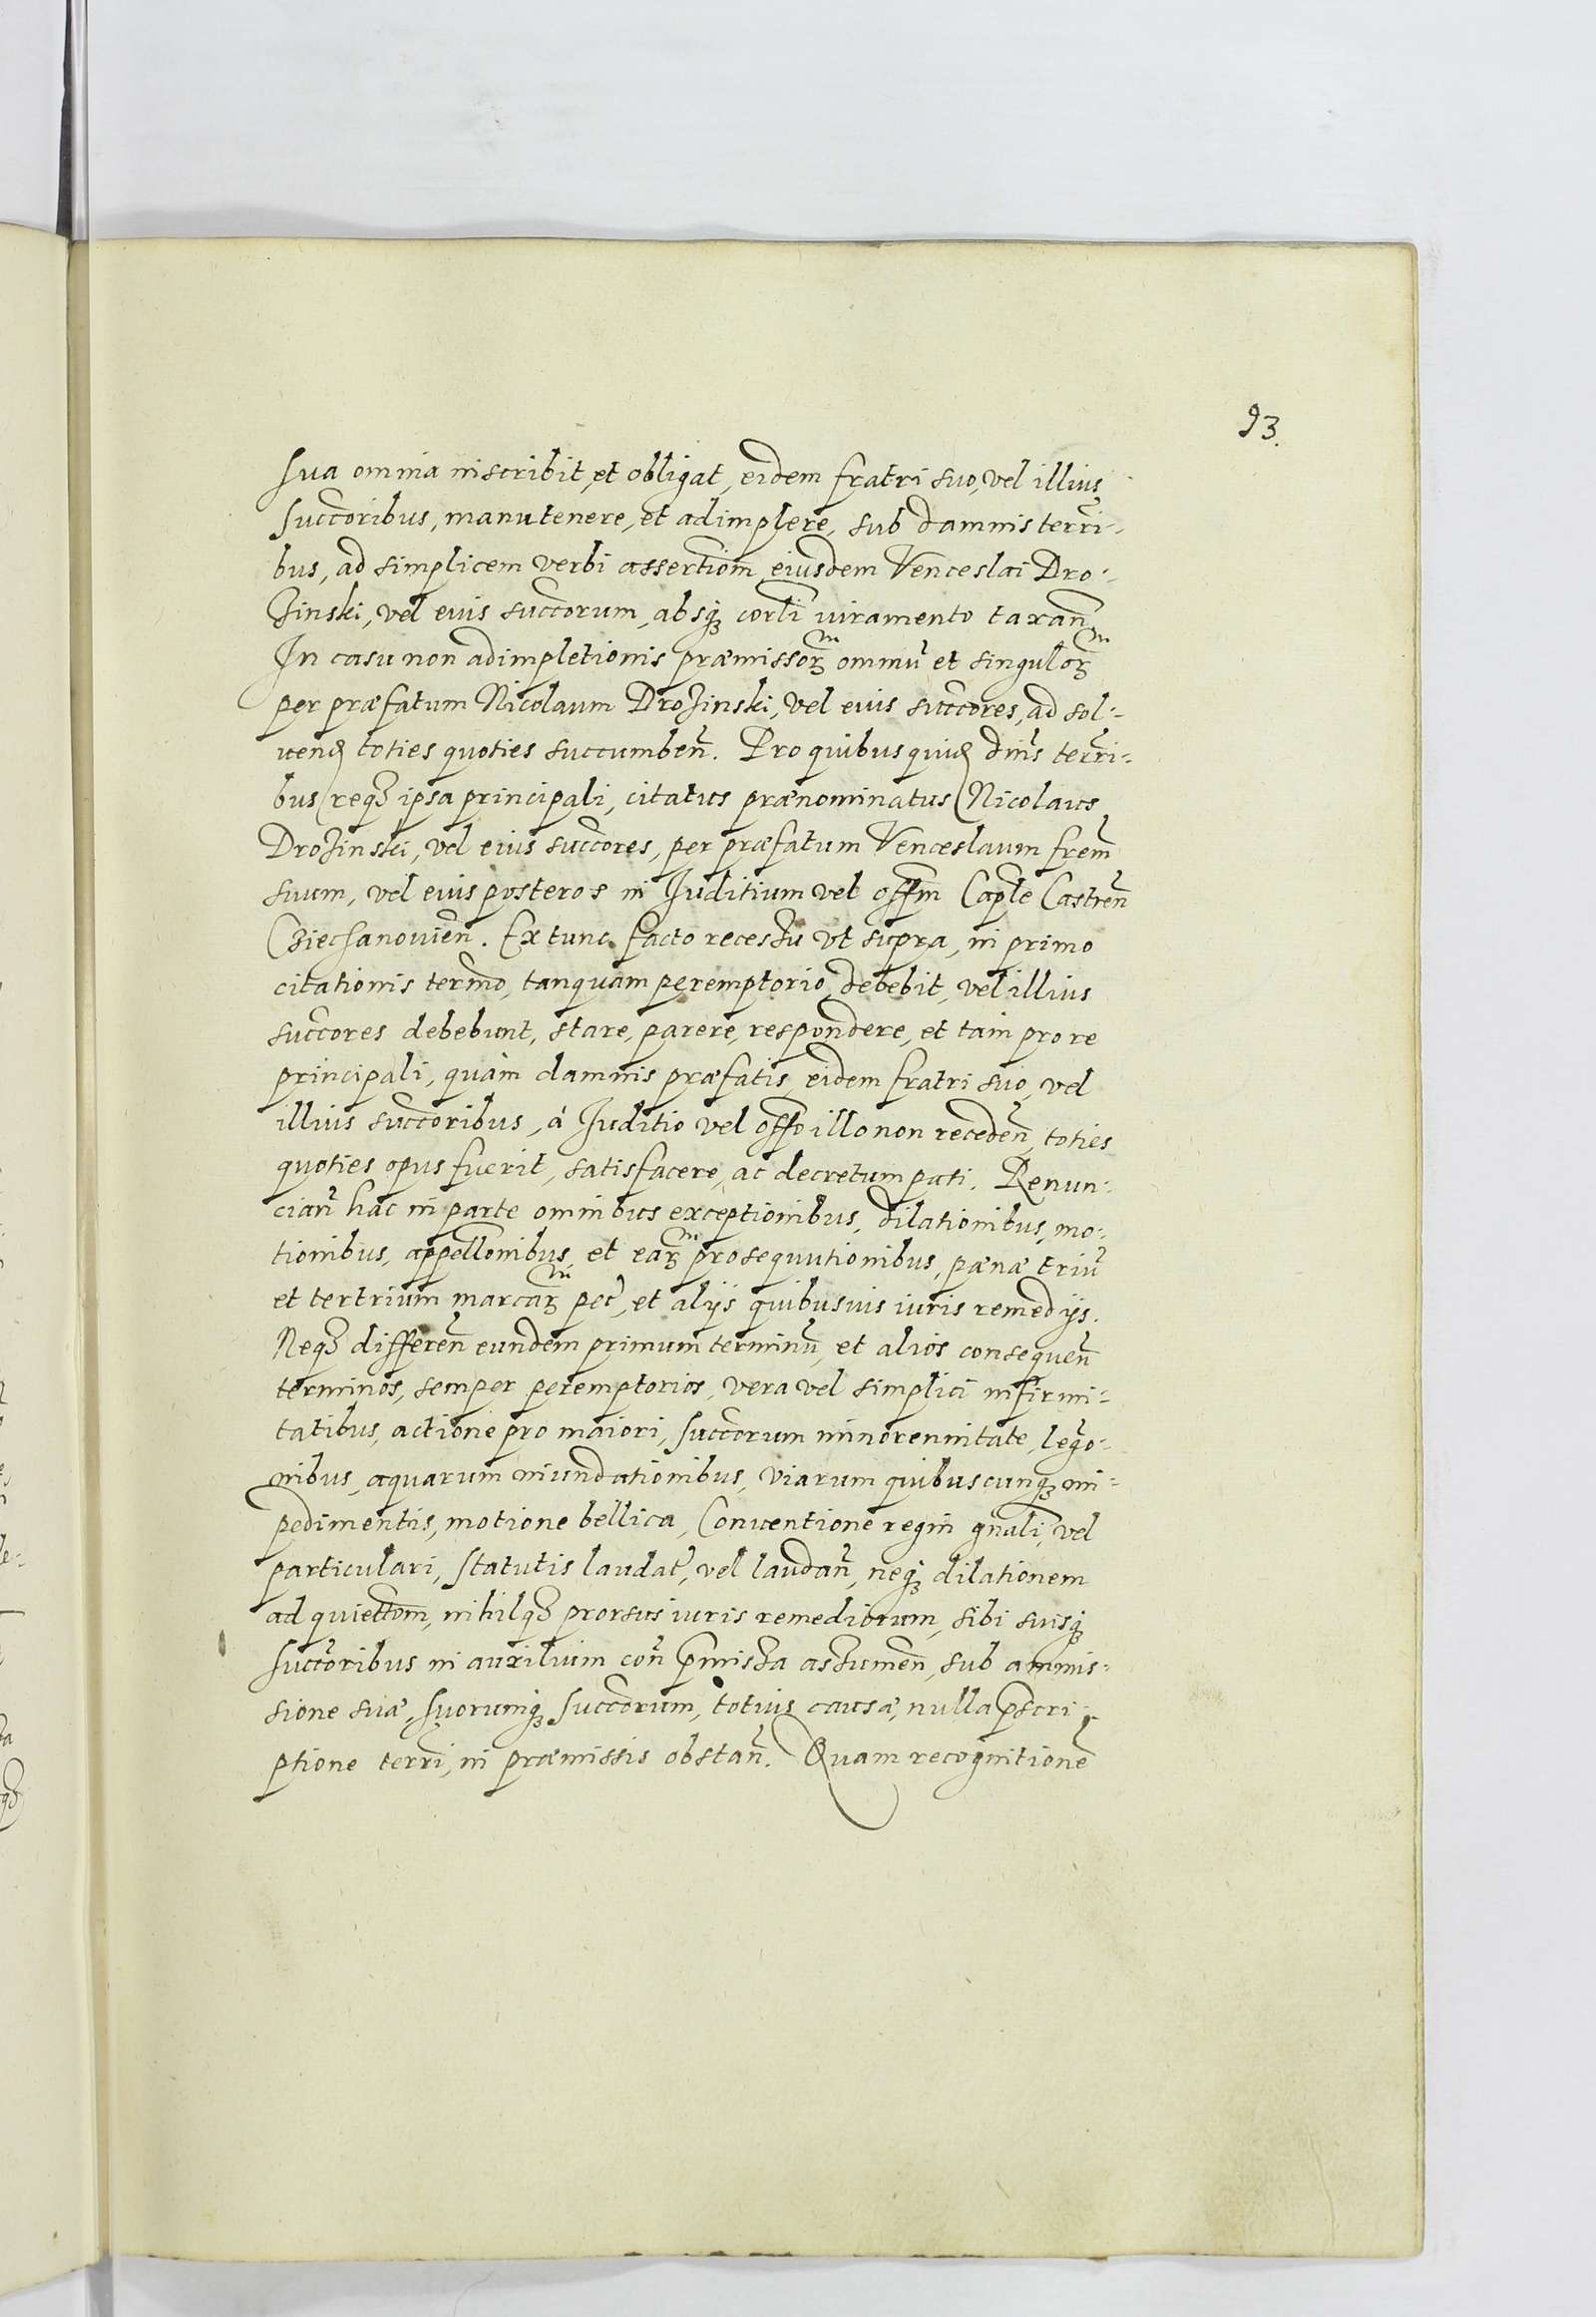 93.
sua omnia inscribit, et obligat, eidem fratri suo, vel illius
succoribus, manutenere, et adimplere, sub damnis terri-
bus, ad simplicem verbi assertiom̄ eiusdem Venceslai Dro-
zinski, vel euis succorum, absq̃ corli iuramento taxan̄
In casu non adimpletionis præmissorm omniũ et singulorm
per præfatum Nicolaum Drozinski, vel eius succores, ad sol-
uend toties quoties succumben̄. Pro quibus quid dnis terri-
bus reqȝ ipsa principali, citatus prænominatus Nicolaus
Drozinski, vel eius succores, per præfatum Venceslaum frem̄
suum, vel eius posteros in Juditium vel offm Caple Castren̄
Cziechanouien̄. Ex tunc facto recessu vt supra, in primo
citationis termo, tanquam peremptorio debebit, vel illius
succores debebunt, stare, parere, respondere, et tam pro re
principali, quàm damnis præfatis eidem fratri suo, vel
illius succoribus, à Juditio vel offo illo non receden̄ toties
quoties opus fuerit, satisfacere, ac decretum pati. Renun-
cian̄ hac in parte omnibus exceptionibus, dilationibus, mo-
tionibus, appellonibus, et earm prosequutionibus, pænæ triũ
et tertrium marcarm pec̃, et alijs quibusuis iuris remedijs.
Neqȝ differen̄ eundem primum terminũ, et alios consequen̄
terminos, semper peremptorios, vera vel simplici infirmi-
tatibus, actione pro maiori, succorum minorennitate, lego-
nibus, aquarum inundationibus, viarum quibuscunqȝ im-
pedimentis, motione bellica, Conuentione regni gnali, vel
particulari, statutis laudat̃, vel laudan̄, neqȝ dilationem
ad quiettom̄, nihilqȝ prorsus iuris remediorum, sibi suisqȝ
succoribus in auxilium con̄ pmissa assumen̄, sub ammis-
sione suæ, suorumqȝ succorum, totius causæ, nulla pscri-
ptione terri, in præmissis obstan̄. Quam recognitionẽ